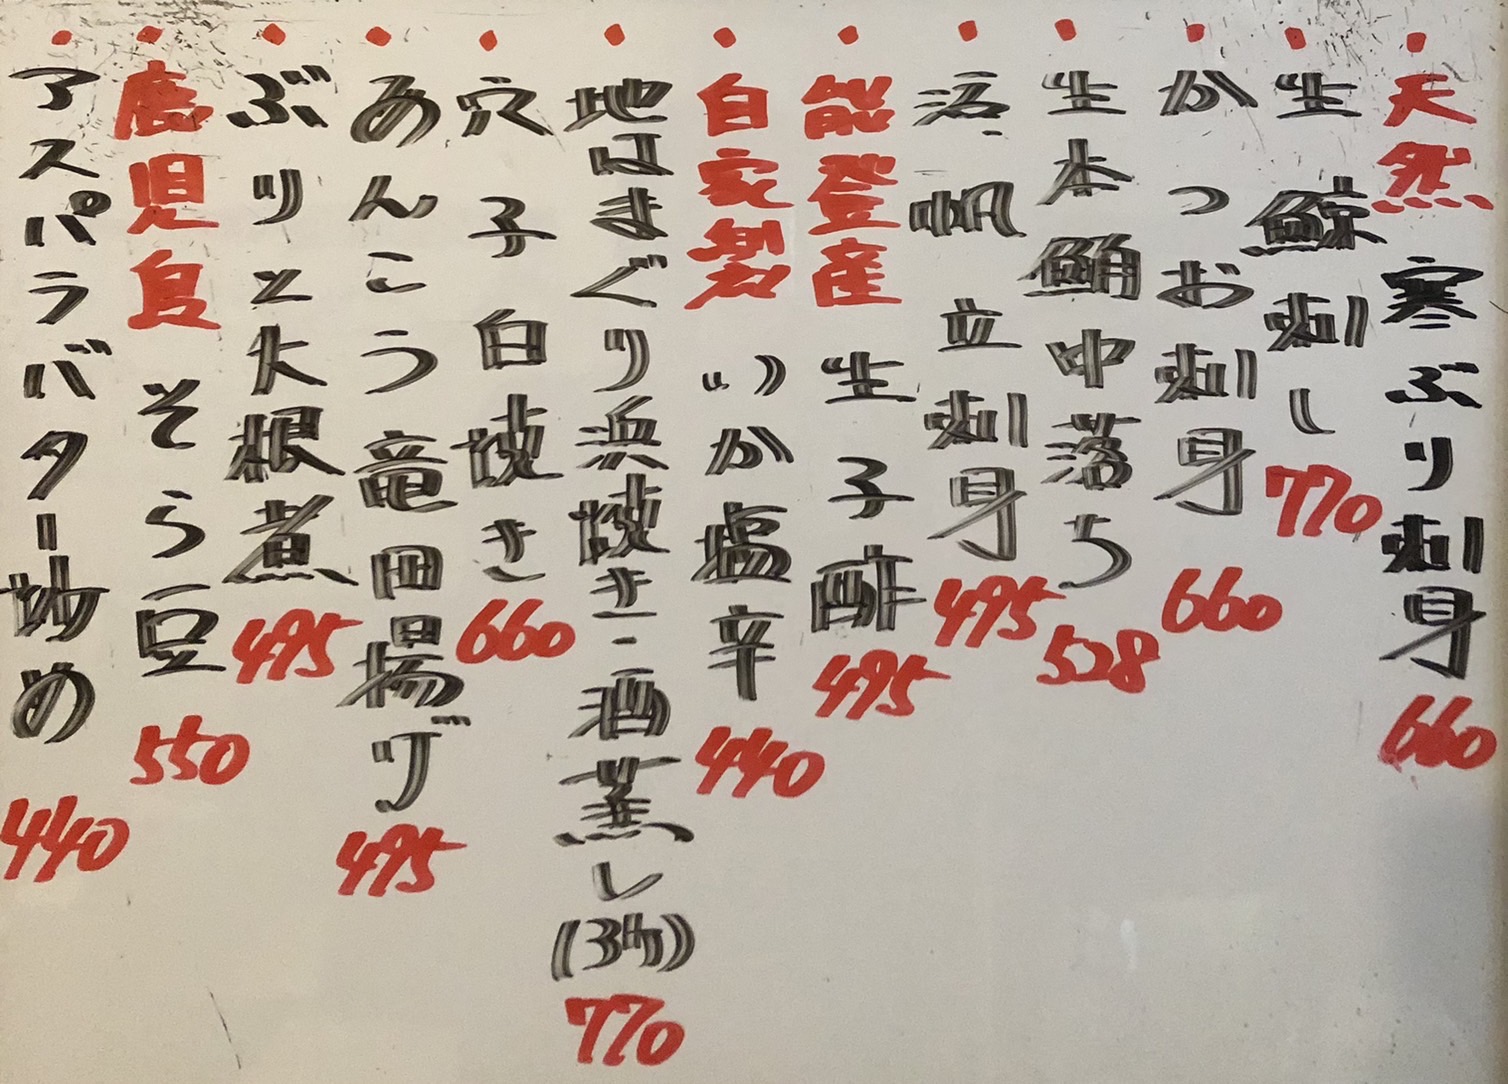 ・天然 寒ぶり刺身 660
・生鯨刺し 770
・かつお刺身 660
・生本鮪中落ち 528
・活帆立刺身 495
・能登産 生子酢 495
・自家製 いか塩辛 440
・地はまぐり浜焼き・酒蒸し(3ケ) 770
・穴子白焼き 660
・あんこう竜田揚げ 495
・ぶりと大根煮 495
・鹿児島 そら豆 550
・アスパラバター炒め 440